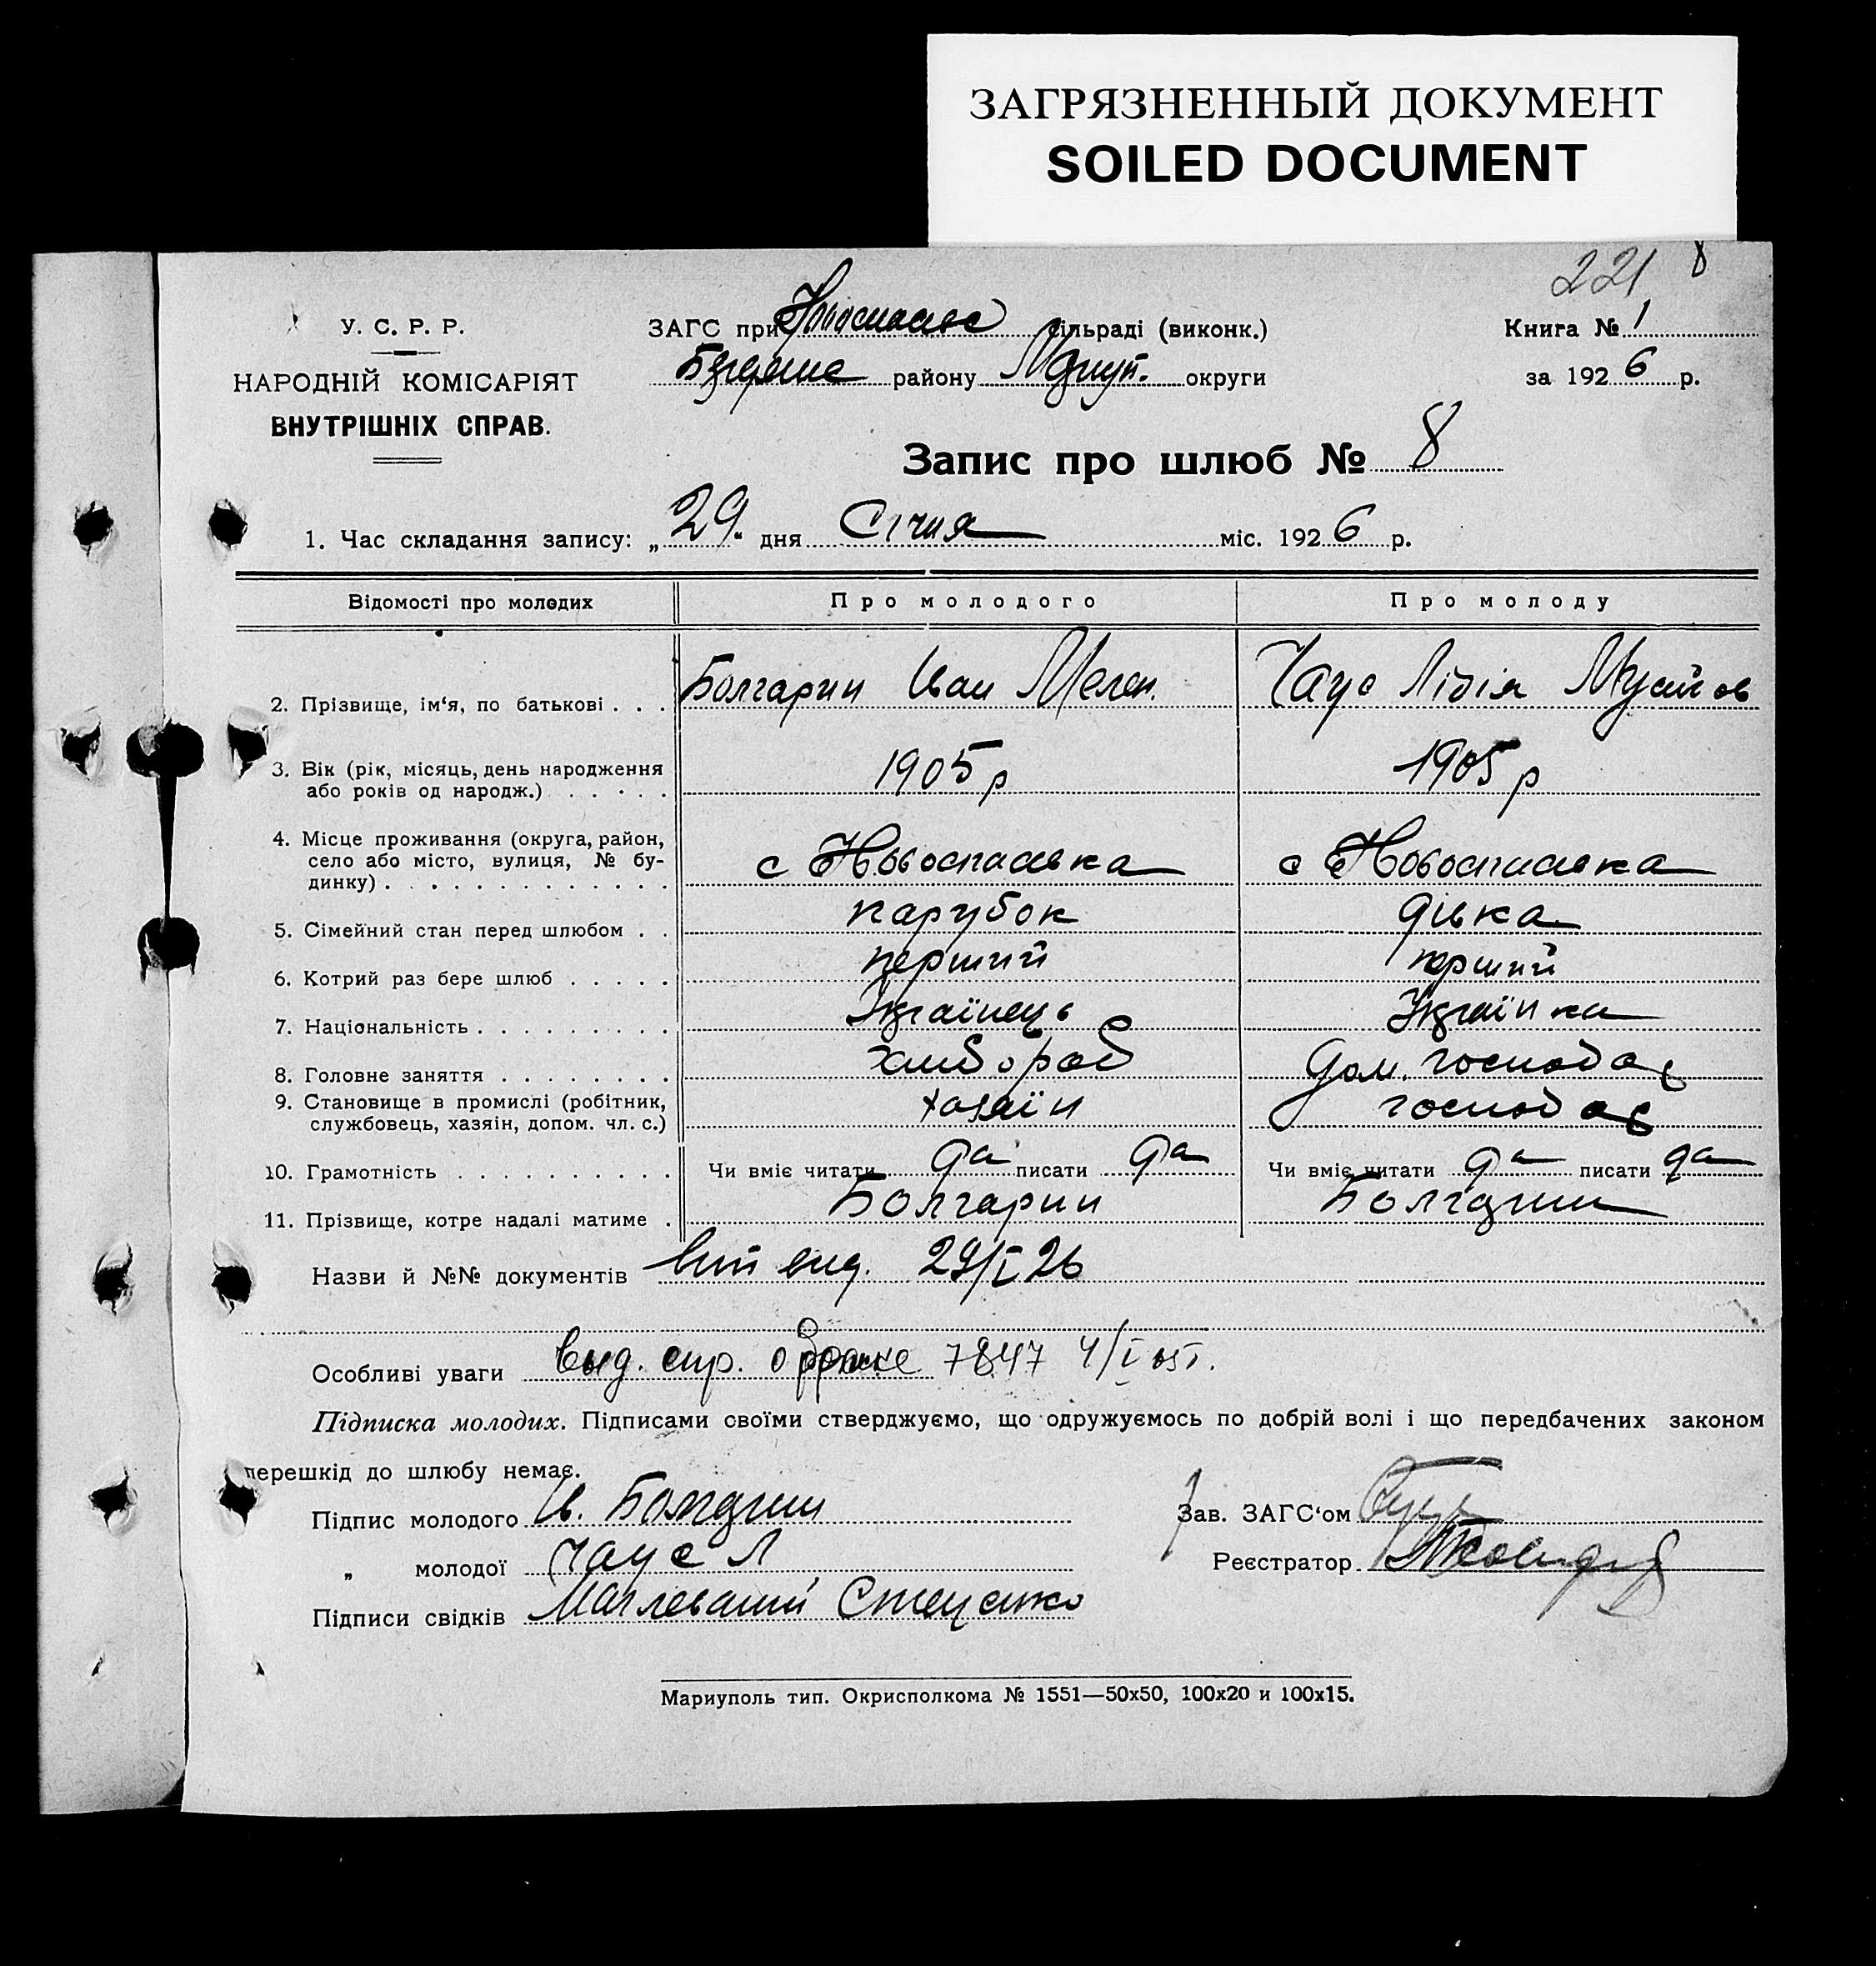 ЗАГРЯЗНЕННЫЙ ДОКУМЕНТ
SOILED DOCUMENT
221 8
У. С. Р. Р.
НАРОДНІЙ КОМІСАРІЯТ
ВНУТРІШНІХ СПРАВ.
ЗАГС при сільраді (виконк.)
району Мариуп. округи
Книга № 1
за 1926 р.
Запис про шлюб № 8
1. Час складання запису: „29" дня Січня міс. 1926 р.
Відомості про молодих Про молодого Про молоду
2. Прізвище, ім'я, по батькові . . . Болгарин Иван Мелен. Чаус Лідія Мусійов
3. Вік (рік, місяць, день народження
або років од народж.) . . . . . 1905 р 1905 р
4. Місце проживання (округа, район,
село або місто, вулиця, № бу-
динку) . . . . . . . . . . . . . с Новоспасовка с Новоспасовка
5. Сімейний стан перед шлюбом . . парубок дівка
6. Котрий раз бере шлюб . . . . . перший перший
7. Національність . . . . . . . . . Українець Українка
8. Головне заняття . . . . . . . . хлібороб Дом. господар
9. Становище в промислі (робітник,
службовець, хазяін, допом. чл. с.) хазяїн господар
10. Грамотність . . . . . . . . . . Чи вміє читати да писати да Чи вміє читати да писати да
11. Прізвище, котре надалі матиме . Болгарин Болгарин
Назви й №№ документів вид. 29/I 26
Особливі уваги выд. спр. о браке 7847 4/I
Підписка молодих. Підписами своїми стверджуємо, що одружуємось по добрій волі і що передбачених законом
перешкід до шлюбу немає.
Підпис молодого Ів. Болгарин
„ молодої Чаус Л
Підписи свідків Стеценко
Зав. ЗАГС'ом
Реєстратор
Мариуполь тип. Окрисполкома № 1551—50х50, 100х20 и 100х15.